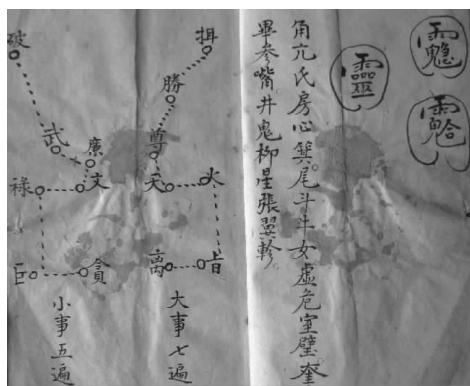 靈
角亢氏房心箕尾斗牛女虛危室壁奎
畢参嘴井鬼柳星張翼軫
勝
尊
天
火
大事七遍
破
武
廉
文
祿
巨
貪
小事五遍